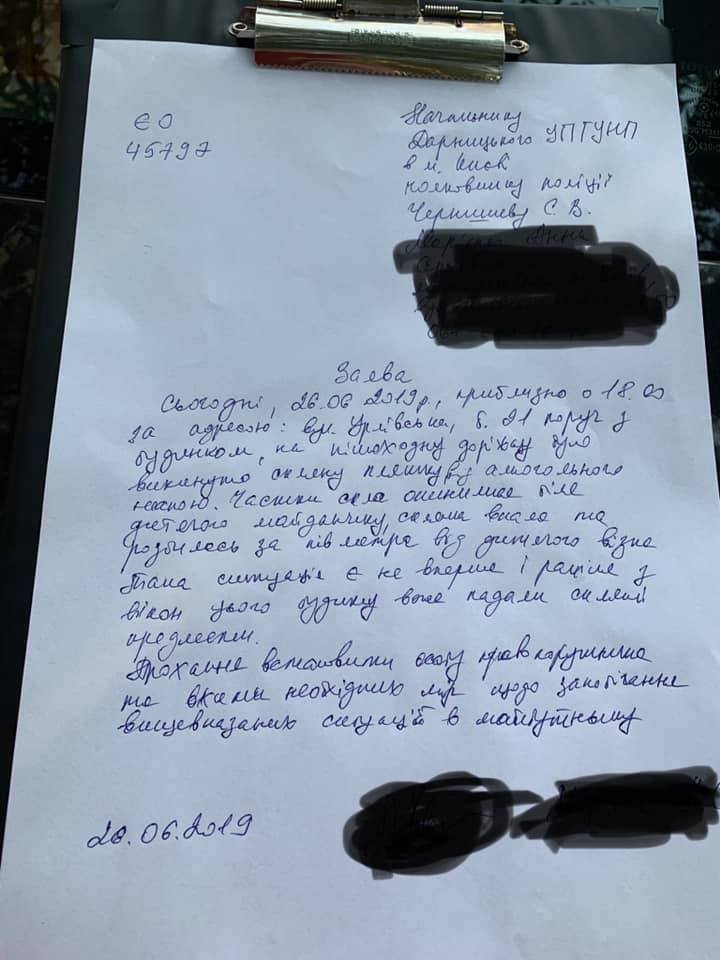 ЄО
45797
Начальнику
Дарницького УПГУНП
в м. Києві
полковнику поліції
Чернишеву С. В.
Заява
Сьогодні, 26.06 2019р., приблизно о 18.00
за адресою: вул. Урлівська, б. 21 поруч з
будинком, на пішоходну доріжку було
викинуто скляну пляшку від алкогольного
напою. Частки скла опинилися біля
дитячого майданчику, склома впала та
розбилась за пів метра від дитячого візка
Така ситуація є не вперше і раніше з
вікон цього будинку вже падали скляні
предмети.
Прохання встановити особу правопорушника
та вжити необхідних мір щодо запобігання
вищевказаних ситуацій в майбутньому
26.06.2019